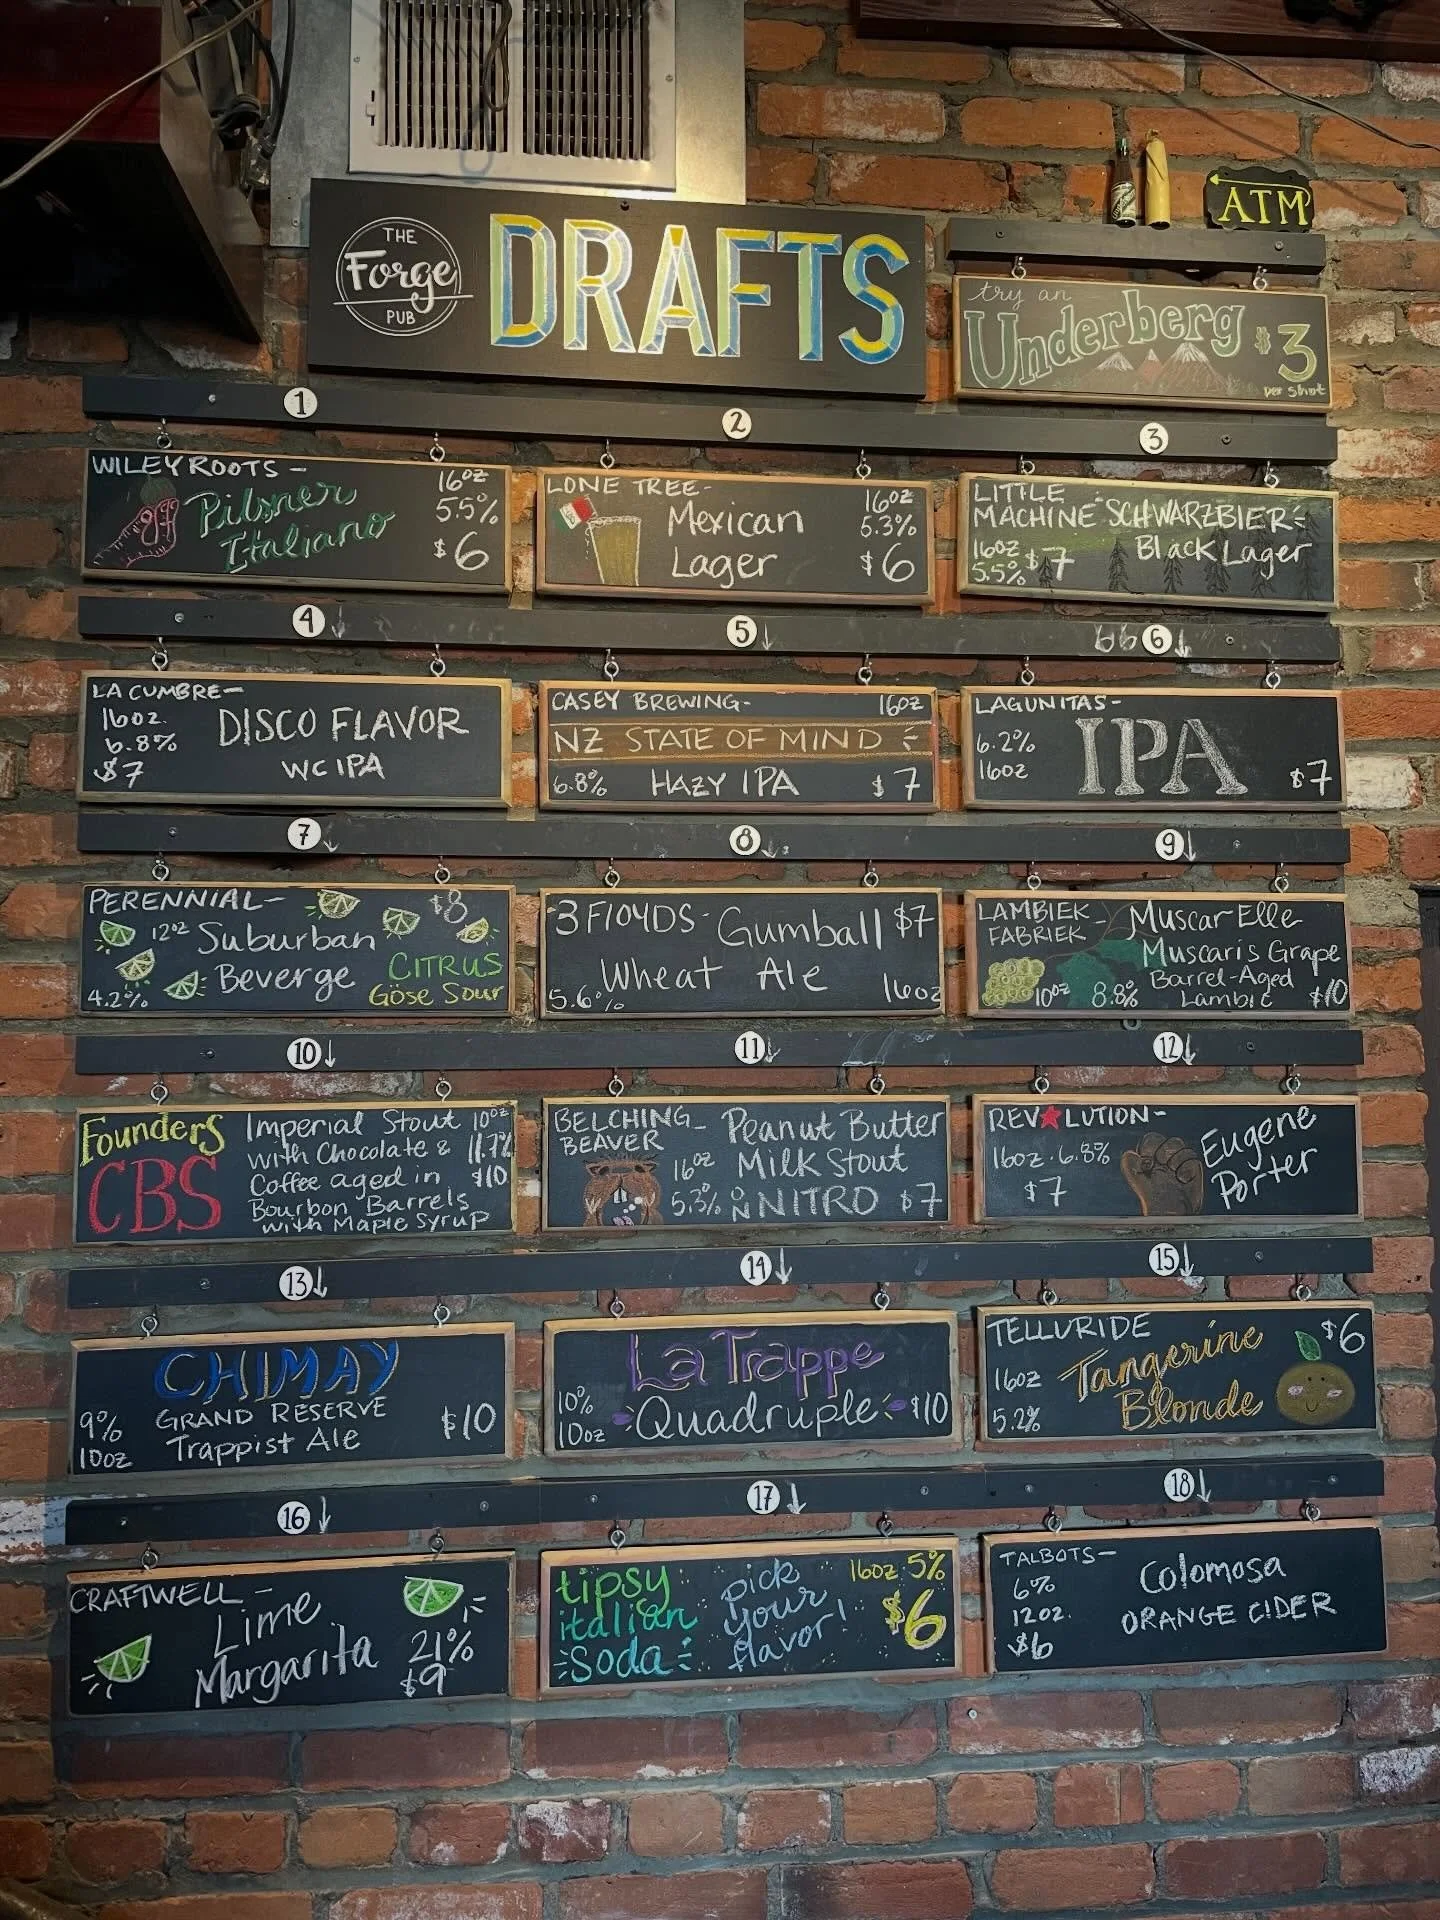 THE
Forge
PUB
DRAFTS
ATM
try an
Underberg $3
per shot
1
WILEY ROOTS -
Pilsner
Italiano
16oz
5.5%
$6
2
LONE TREE-
Mexican
Lager
16oz
5.3%
$6
3
LITTLE
MACHINE - SCHWARZBIER -
Black Lager
16oz
5.5% $7
4
LA CUMBRE-
16oz.
6.8%
$7
DISCO FLAVOR
WC IPA
5
CASEY BREWING- 16oz
NZ STATE OF MIND
6.8% HAZY IPA $7
6
LAGUNITAS-
6.2%
16oz
IPA
$7
7
PERENNIAL- $8
12oz Suburban
Beverge
CITRUS
Göse Sour
4.2%
8
3 FlOYDS - Gumball $7
Wheat Ale
5.6% 16oz
9
LAMBIEK
FABRIEK -
Muscar Elle
Muscaris Grape
Barrel-Aged
Lambic
10oz 8.8% $10
10
Founders
CBS
Imperial Stout 10oz
with Chocolate & 11.7%
Coffee aged in $10
Bourbon Barrels
with Maple Syrup
11
BELCHING
BEAVER -
Peanut Butter
Milk Stout
16oz
5.3% ON NITRO $7
12
REV★LUTION-
16oz · 6.8%
$7
Eugene
Porter
13
CHIMAY
GRAND RESERVE
Trappist Ale
9%
10oz
$10
14
La Trappe
Quadruple
10%
10oz
$10
15
TELLURIDE $6
16oz
5.2%
Tangerine
Blonde
16
CRAFTWELL -
Lime
Margarita
21%
$9
17
tipsy
italian
Soda
pick
your
flavor!
16oz 5%
$6
18
TALBOTS-
6%
12oz.
$6
Colomosa
ORANGE CIDER